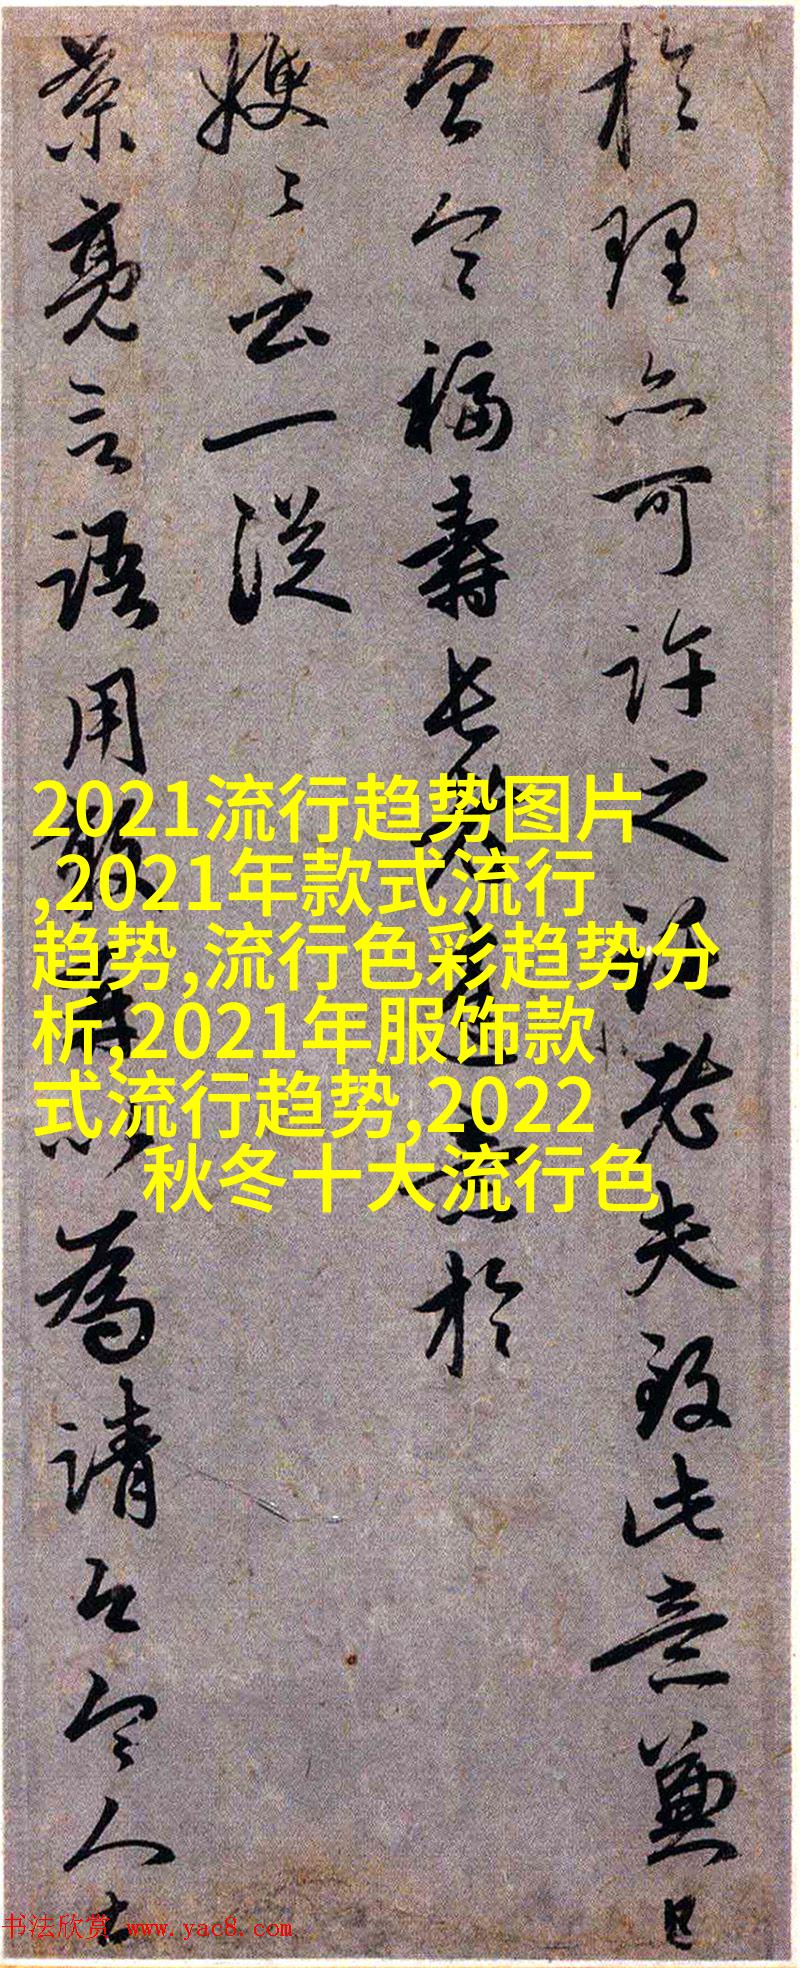 於理亦可許之証老夫致此意兼
曾令福壽長
於
嫂〻云一從
景亮言語用
為請公令人
2021流行趋势图片
,2021年款式流行
趋势,流行色彩趋势分
析,2021年服饰款
式流行趋势,2022
秋冬十大流行色
书法欣赏 www.yac8.com